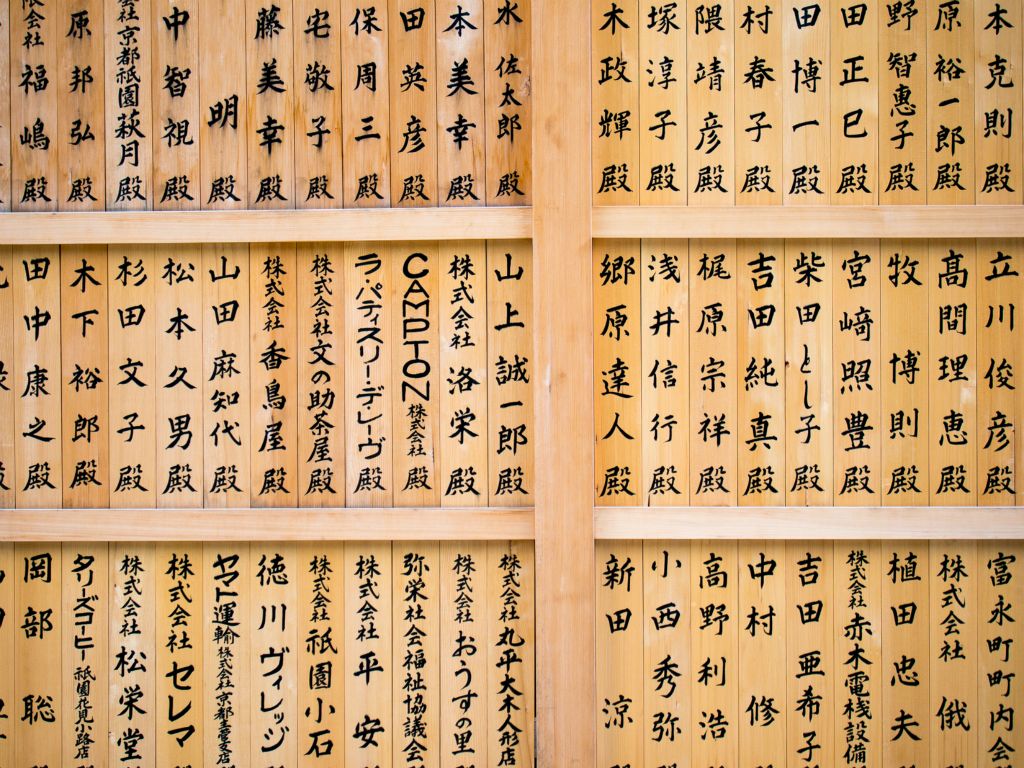 本克則殿
原裕一郎殿
野智惠子殿
田正巳殿
田博一殿
村春子殿
隈靖彦殿
塚淳子殿
木政輝殿
水佐太郎殿
本美幸殿
田英彦殿
保周三殿
宅敬子殿
藤美幸殿
明殿
中智視殿
会社京都祇園萩月殿
原邦弘殿
会社福嶋殿
立川俊彦殿
髙間理恵殿
牧博則殿
宮﨑照豊殿
柴田とし子殿
吉田純真殿
梶原宗祥殿
浅井信行殿
郷原達人殿
山上誠一郎殿
株式会社洛栄殿
CAMPTON株式会社殿
ラ・パティスリー・デ・レーヴ殿
株式会社文の助茶屋殿
株式会社香鳥屋殿
山田麻知代殿
松本久男殿
杉田文子殿
木下裕郎殿
田中康之殿
富永町町内会
株式会社俄
植田忠夫
株式会社赤木電機設備
吉田亜希子
中村修
高野利浩
小西秀弥
新田涼
株式会社丸平大木人形店
株式会社おうすの里
弥栄社会福祉協議会
株式会社平安
株式会社祇園小石
徳川ヴィレッジ
ヤマト運輸株式会社京都主管支店
株式会社セレマ
株式会社松栄堂
タリーズコーヒー祇園花見小路店
岡部聡